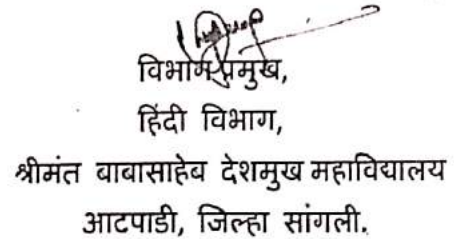 विभाग प्रमुख,
हिंदी विभाग,
श्रीमंत बाबासाहेब देशमुख महाविद्यालय
आटपाडी, जिल्हा सांगली.